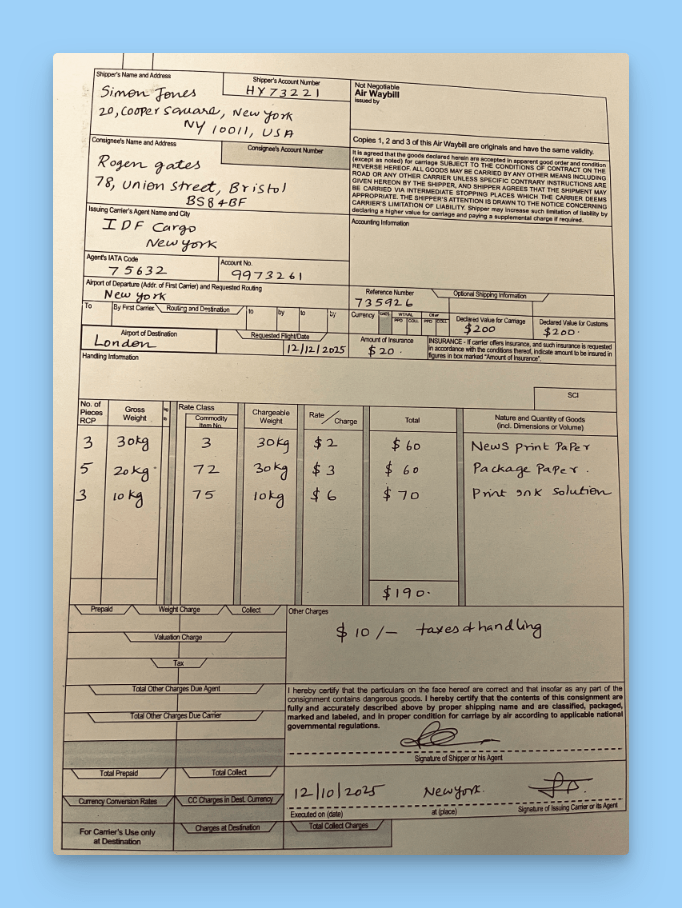 Shipper's Name and Address
Shipper's Account Number
Simon Jones
HY73221
20, Cooper Square, New York
NY 10011, USA
Not Negotiable
Air Waybill
issued by
Copies 1, 2 and 3 of this Air Waybill are originals and have the same validity.
Consignee's Name and Address
Consignee's Account Number
Rogen gates
78, Union street, Bristol
BS8 4BF
It is agreed that the goods declared herein are accepted in apparent good order and condition
(except as noted) for carriage SUBJECT TO THE CONDITIONS OF CONTRACT ON THE
REVERSE HEREOF. ALL GOODS MAY BE CARRIED BY ANY OTHER MEANS INCLUDING
ROAD OR ANY OTHER CARRIER UNLESS SPECIFIC CONTRARY INSTRUCTIONS ARE
GIVEN HEREON BY THE SHIPPER, AND SHIPPER AGREES THAT THE SHIPMENT MAY
BE CARRIED VIA INTERMEDIATE STOPPING PLACES WHICH THE CARRIER DEEMS
APPROPRIATE. THE SHIPPER'S ATTENTION IS DRAWN TO THE NOTICE CONCERNING
CARRIER'S LIMITATION OF LIABILITY. Shipper may increase such limitation of liability by
declaring a higher value for carriage and paying a supplemental charge if required.
Issuing Carrier's Agent Name and City
IDF Cargo
New york
Accounting Information
Agent's IATA Code
Account No.
75632
9973261
Airport of Departure (Addr. of First Carrier) and Requested Routing
New york
Reference Number
Optional Shipping Information
735926
To
By First Carrier
Routing and Destination
to
by
to
by
Currency
Declared Value for Carriage
$200
Declared Value for Customs
$200.
Airport of Destination
London
Requested Flight/Date
12/12/2025
Amount of Insurance
$20.
INSURANCE - If carrier offers insurance, and such insurance is requested
in accordance with the conditions thereof, indicate amount to be insured in
figures in box marked "Amount of Insurance".
Handling Information
SCI
No. of Pieces RCP
Gross Weight
Rate Class
Commodity Item No.
Chargeable Weight
Rate / Charge
Total
Nature and Quantity of Goods
(incl. Dimensions or Volume)
3 30kg 3 30kg $2 $60 News print Paper
5 20kg 72 30kg $3 $60 Package Paper.
3 10kg 75 10kg $6 $70 Print ink solution
$190.
Prepaid
Weight Charge
Collect
Other Charges
$10/- taxes & handling
Valuation Charge
Tax
Total Other Charges Due Agent
Total Other Charges Due Carrier
I hereby certify that the particulars on the face hereof are correct and that insofar as any part of the
consignment contains dangerous goods. I hereby certify that the contents of this consignment are
fully and accurately described above by proper shipping name and are classified, packaged,
marked and labeled, and in proper condition for carriage by air according to applicable national
governmental regulations.
Signature of Shipper or his Agent
Total Prepaid
Total Collect
Currency Conversion Rates
CC Charges in Dest. Currency
12/10/2025
New york.
Executed on (date)
at (place)
Signature of Issuing Carrier or its Agent
For Carrier's Use only
at Destination
Charges at Destination
Total Collect Charges